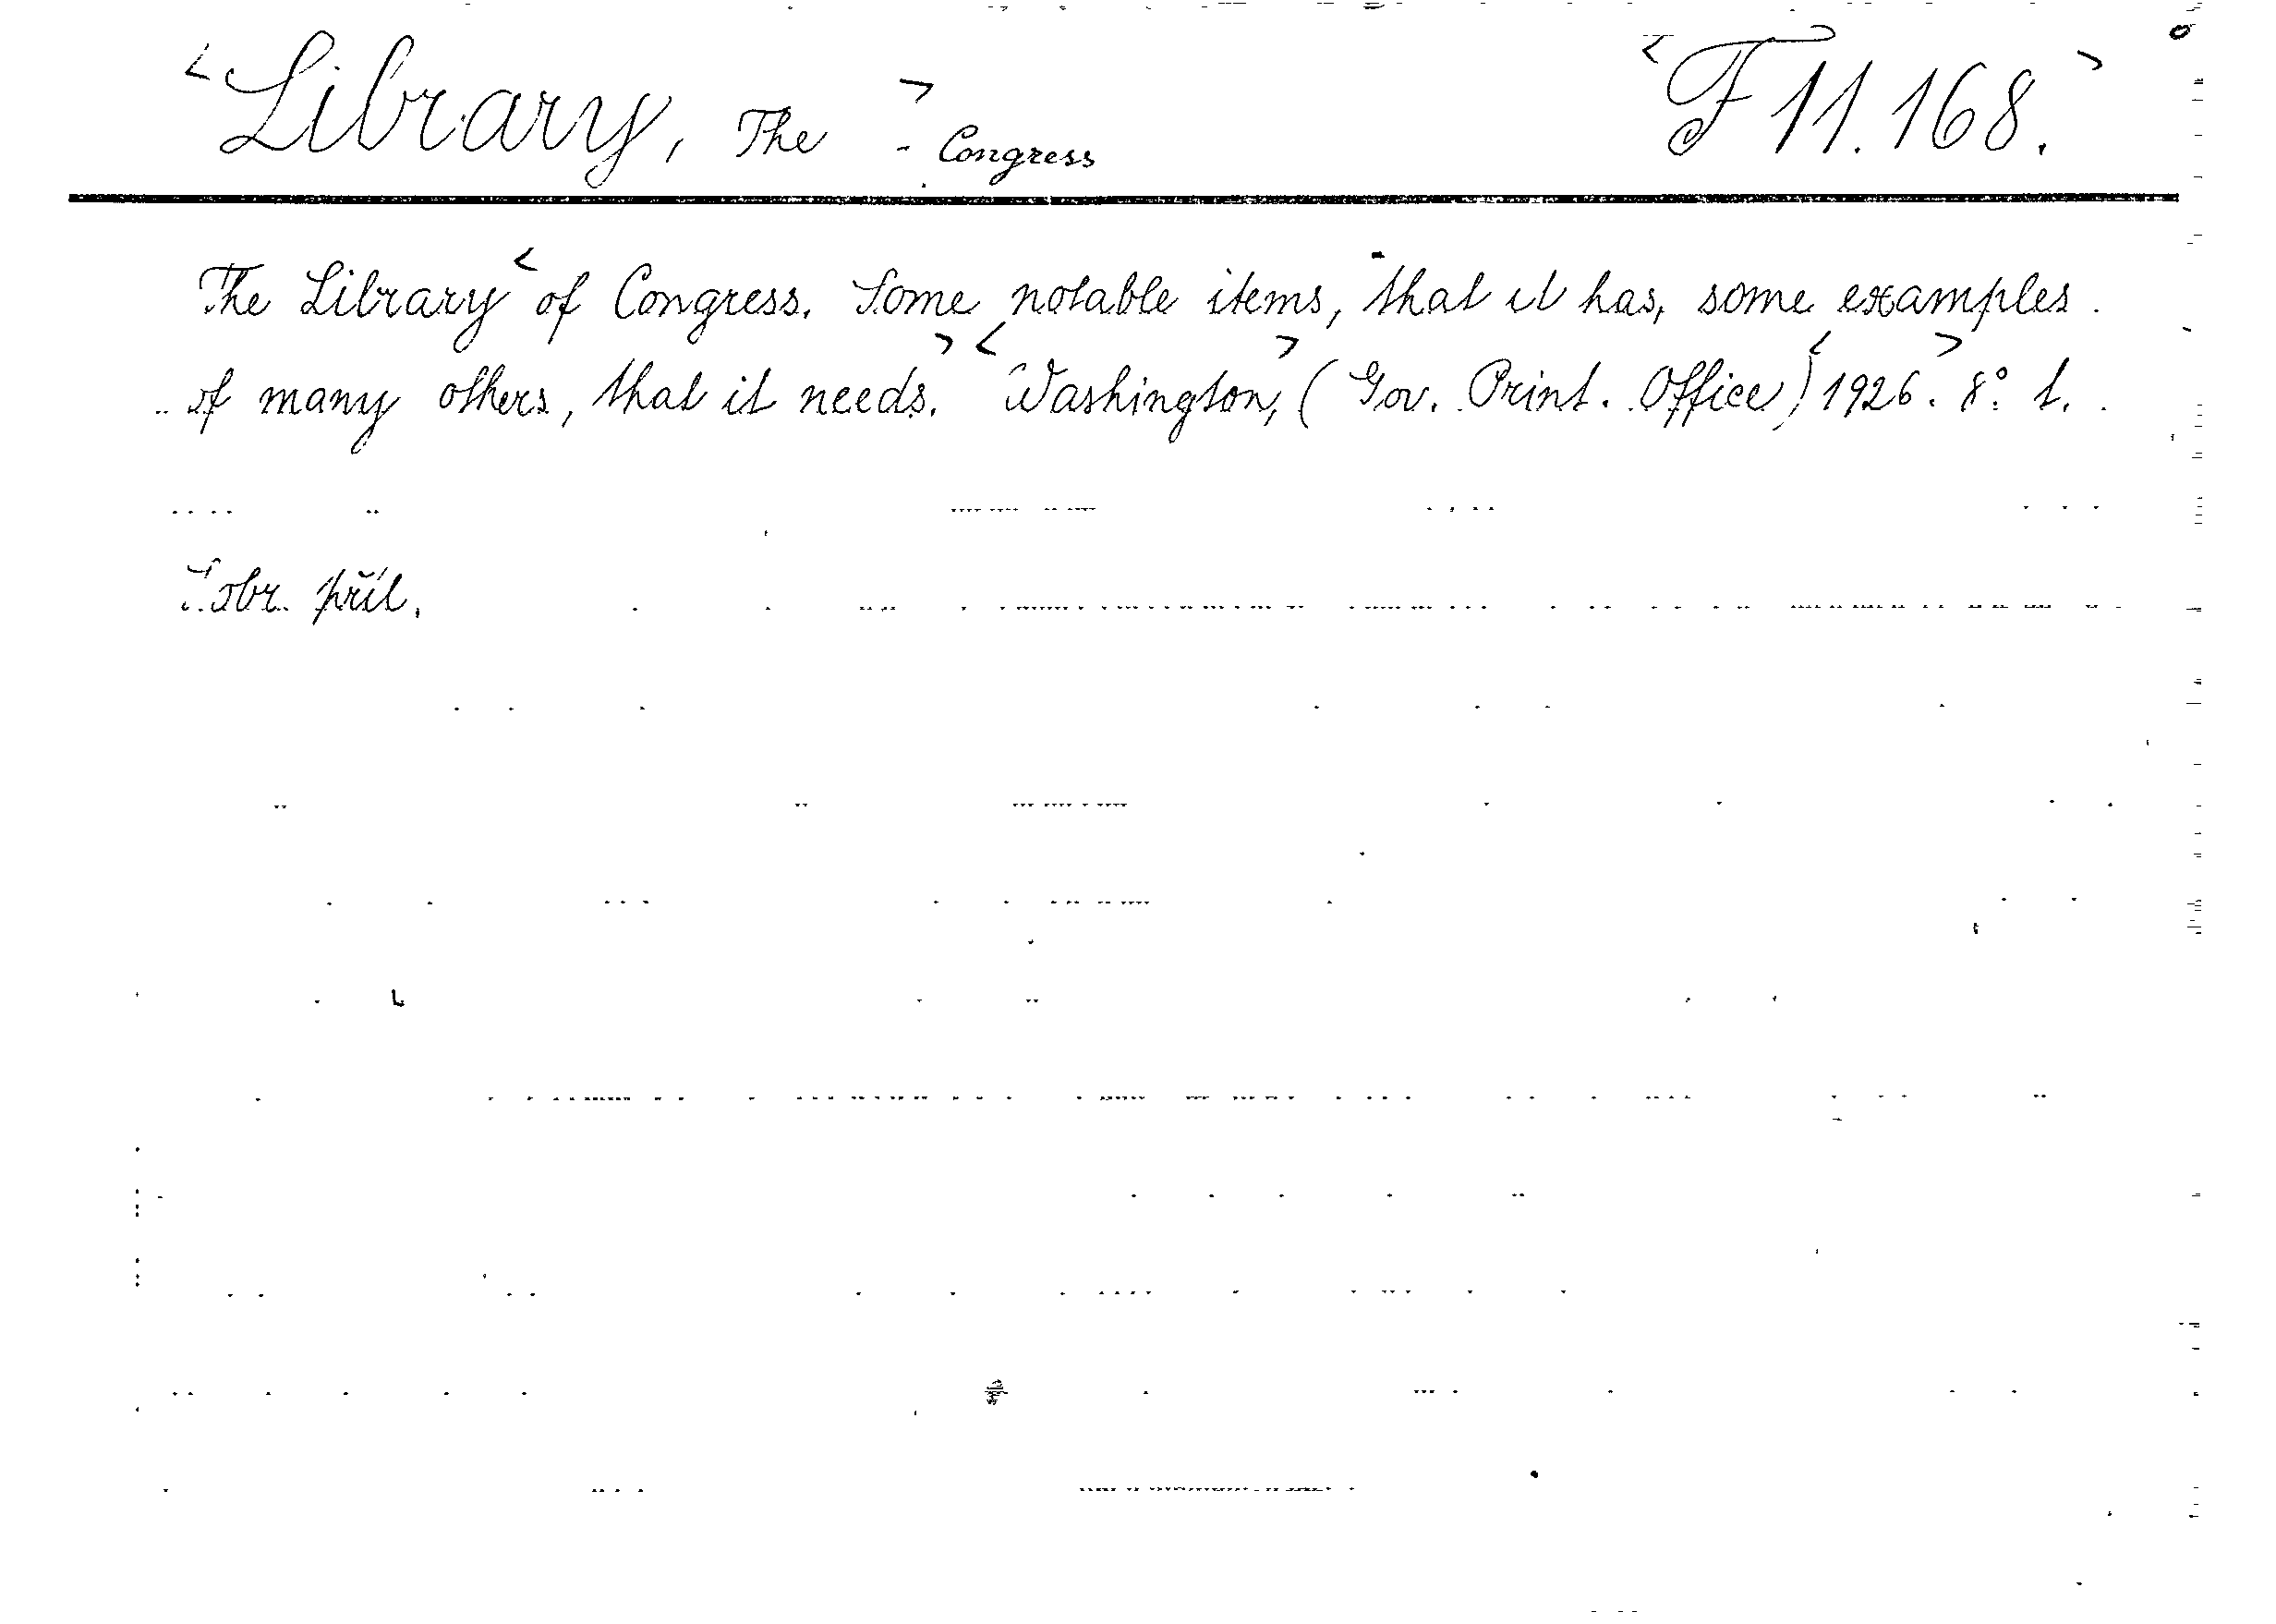 <Library, The> - Congress <F 11.168.>
The Library <of Congress. Some notable items, that it has, some examples
of many others, that it needs.> <Washington,> (Gov. Print. Office) <1926.> 8° t.
S obr. příl.